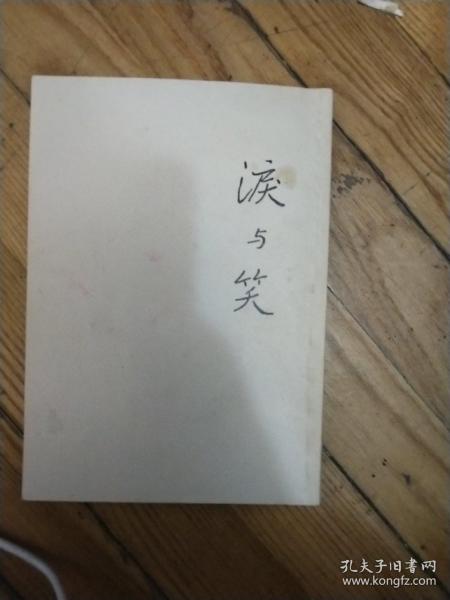 淚
与
笑
孔夫子旧书网
www.kongfz.com